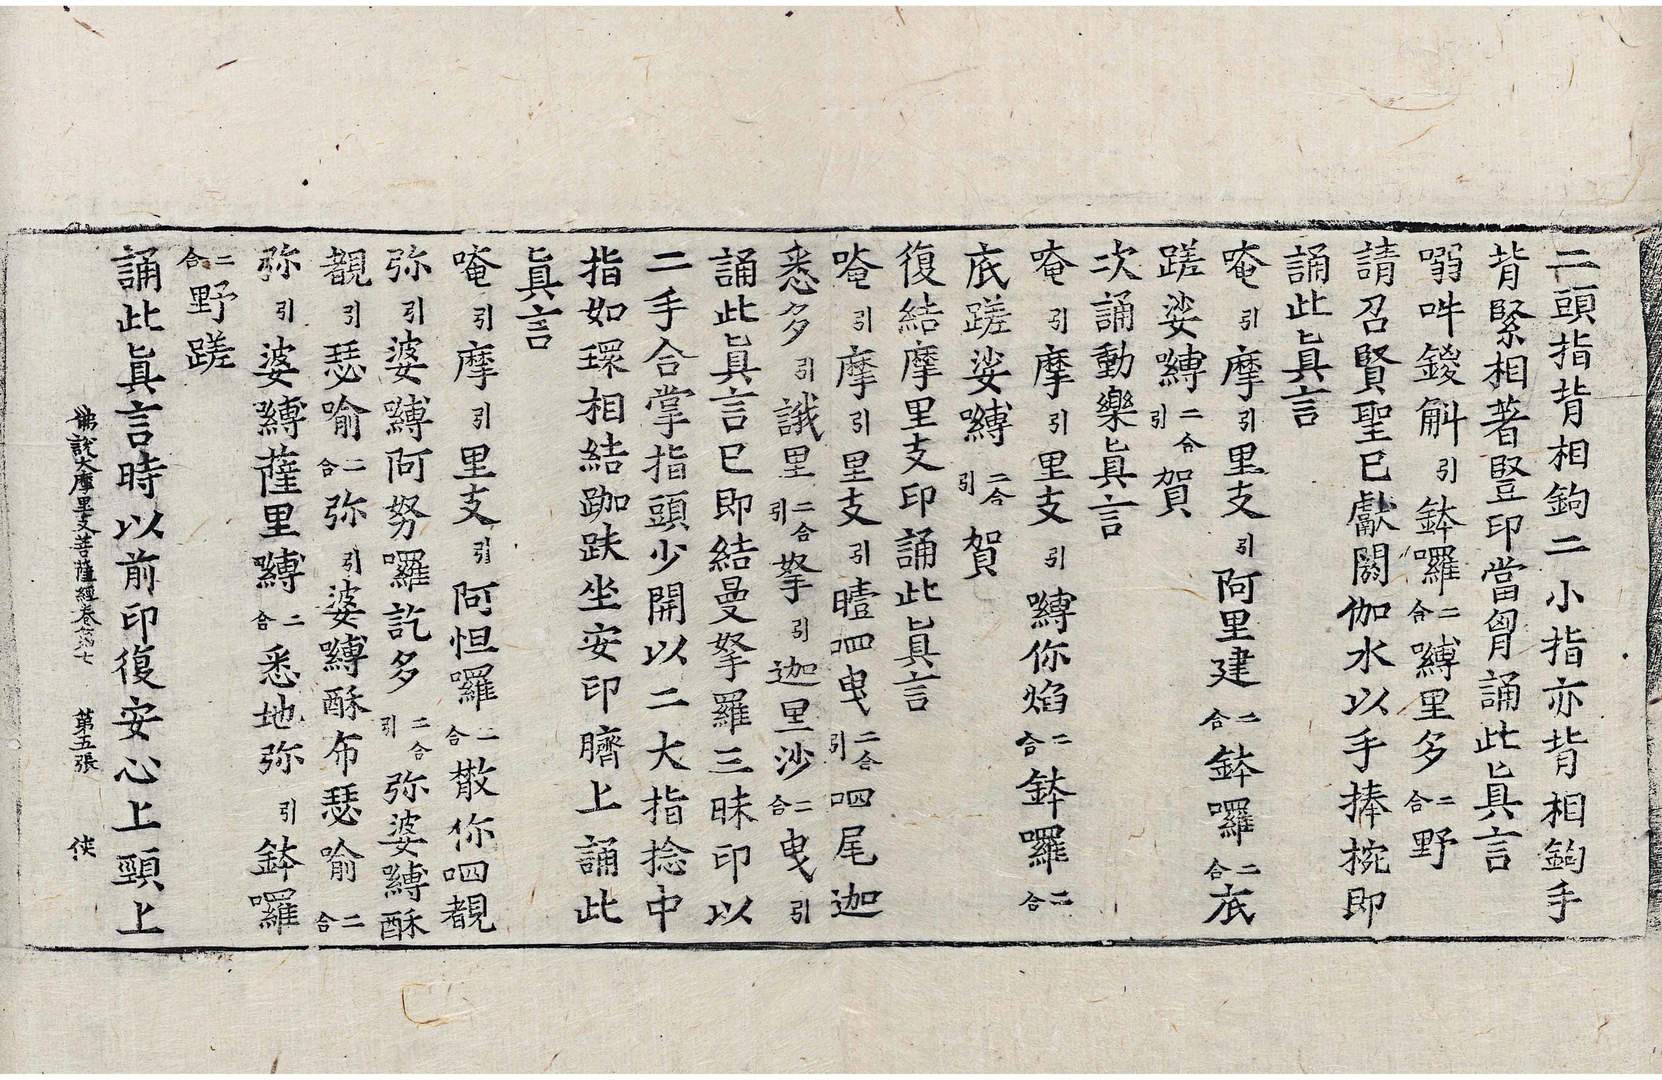 二頭指背相鉤二小指亦背相鉤手
背緊相著豎印當胷誦此眞言
嗗吽鑁斛引鉢囉二合嚩里多二合野
請召賢聖已獻閼伽水以手捧椀即
誦此眞言
唵引摩引里支引阿里建二合鉢囉二合底
蹉娑嚩二合引賀
次誦動樂眞言
唵引摩引里支引嚩你焰二合鉢囉二合
底蹉娑嚩二合引賀
復結摩里支印誦此眞言
唵引摩引里支引曀呬曳二合引呬尾迦
悉多引誐里二合引拏引迦里沙二合曳引
誦此眞言已即結曼拏羅三昧印以
二手合掌指頭少開以二大指捻中
指如環相結跏趺坐安印臍上誦此
眞言
唵引摩引里支引阿怛囉二合散你呬覩
弥引婆嚩阿努囉訖多二合引弥婆嚩酥
覩引瑟喻二合弥引婆嚩酥布瑟喻二合
弥引婆嚩薩里嚩二合悉地弥引鉢囉
二合野蹉
誦此眞言時以前印復安心上頸上
佛說大摩里支菩薩經卷第七 第五張 俠